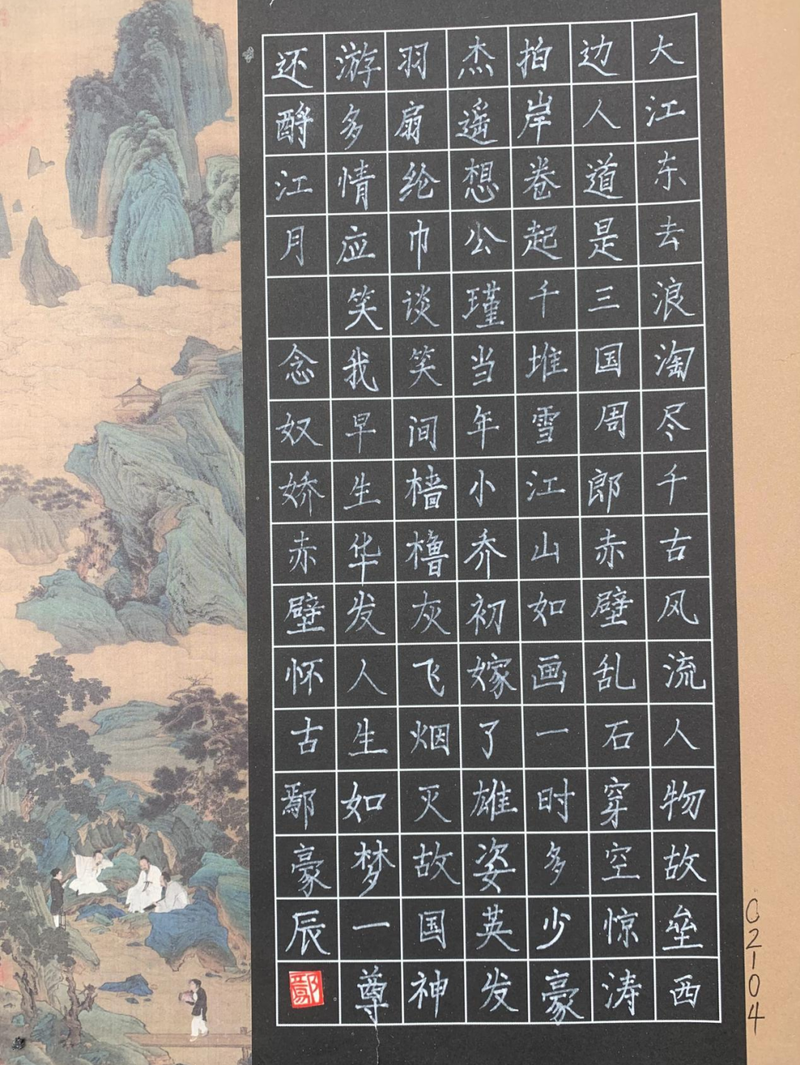 大江东去浪淘尽千古风流人物故垒西
边人道是三国周郎赤壁乱石穿空惊涛
拍岸卷起千堆雪江山如画一时多少豪
杰遥想公瑾当年小乔初嫁了雄姿英发
羽扇纶巾谈笑间樯橹灰飞烟灭故国神
游多情应笑我早生华发人生如梦一尊
还酹江月 念奴娇赤壁怀古鄢豪辰
02104